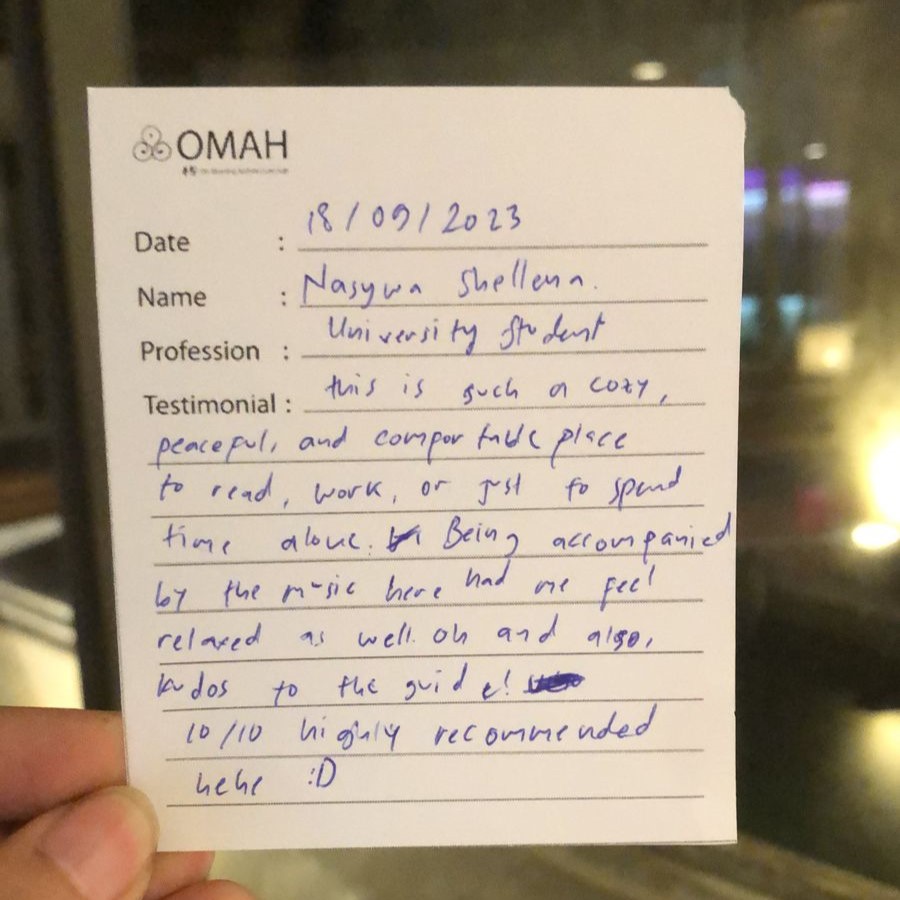 OMAH
Date : 18/09/2023
Name : Nasywa Shellena.
Profession : University Student
Testimonial : this is such a cozy,
peaceful, and comfortable place
to read, work, or just to spend
time alone. Being accompanied
by the music here had me feel
relaxed as well. oh and also,
kudos to the guide!
10/10 highly recommended
hehe :D